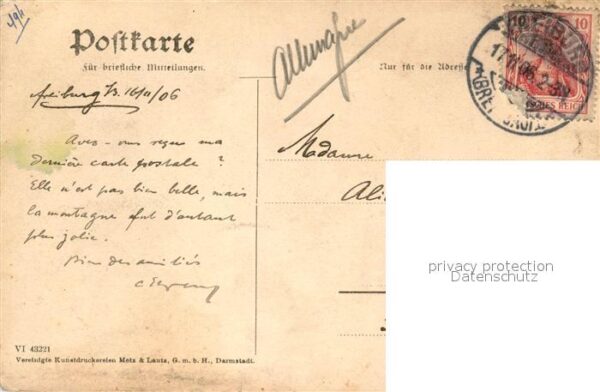 Postkarte
Für briefliche Mitteilungen.
Nur für die Adresse
Allemagne
10
freiburg 16/11/06
Avez-vous reçu ma
dernière carte postale ?
Elle n'est pas bien belle, mais
la montagne fut d'autant
plus jolie.
Bien des amitiés
Madame
Ali
privacy protection
Datenschutz
VI 43221
Vereinigte Kunstdruckereien Metz & Lautz, G. m. b. H., Darmstadt.